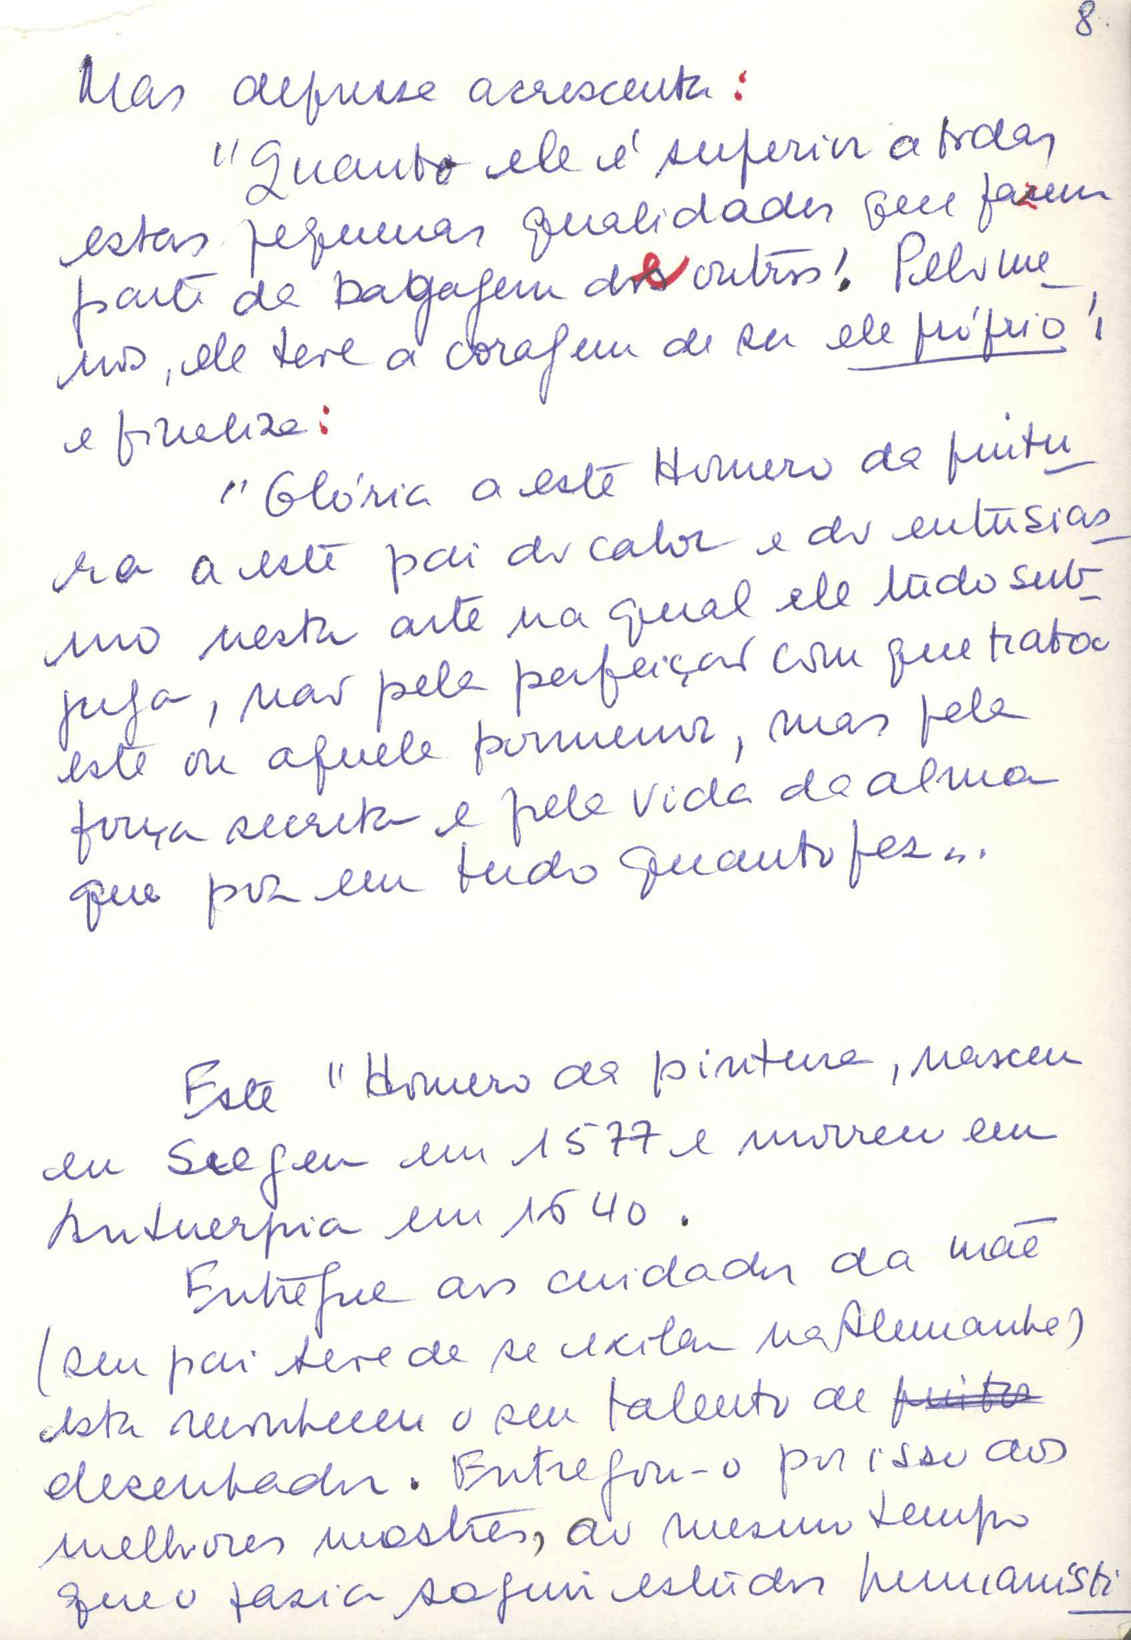 8.
Mas depressa acrescenta:
"Quanto ele é superior a todas
estas pequenas qualidades que fazem
parte da bagagem dos outros! Pelo me_
nos, ele teve a coragem de ser ele próprio";
e finaliza:
"Glória a este Homero da pintu_
ra a este pai do calor e do entusias_
mo nesta arte na qual ele tudo sub_
juga, não pela perfeição com que trata
este ou aquele pormenor, mas pela
força secreta e pela vida da alma
que poz em tudo quanto fez...
Este "Homero da pintura, nasceu
em Siegen em 1577 e morreu em
Antuerpia em 1640.
Entregue aos cuidados da mãe
(seu pai teve de se exilar na Alemanha)
esta reconheceu o seu talento de pintor
desenhador. Entregou-o por isso aos
melhores mestres, ao mesmo tempo
que o fazia seguir estudos humanisti_